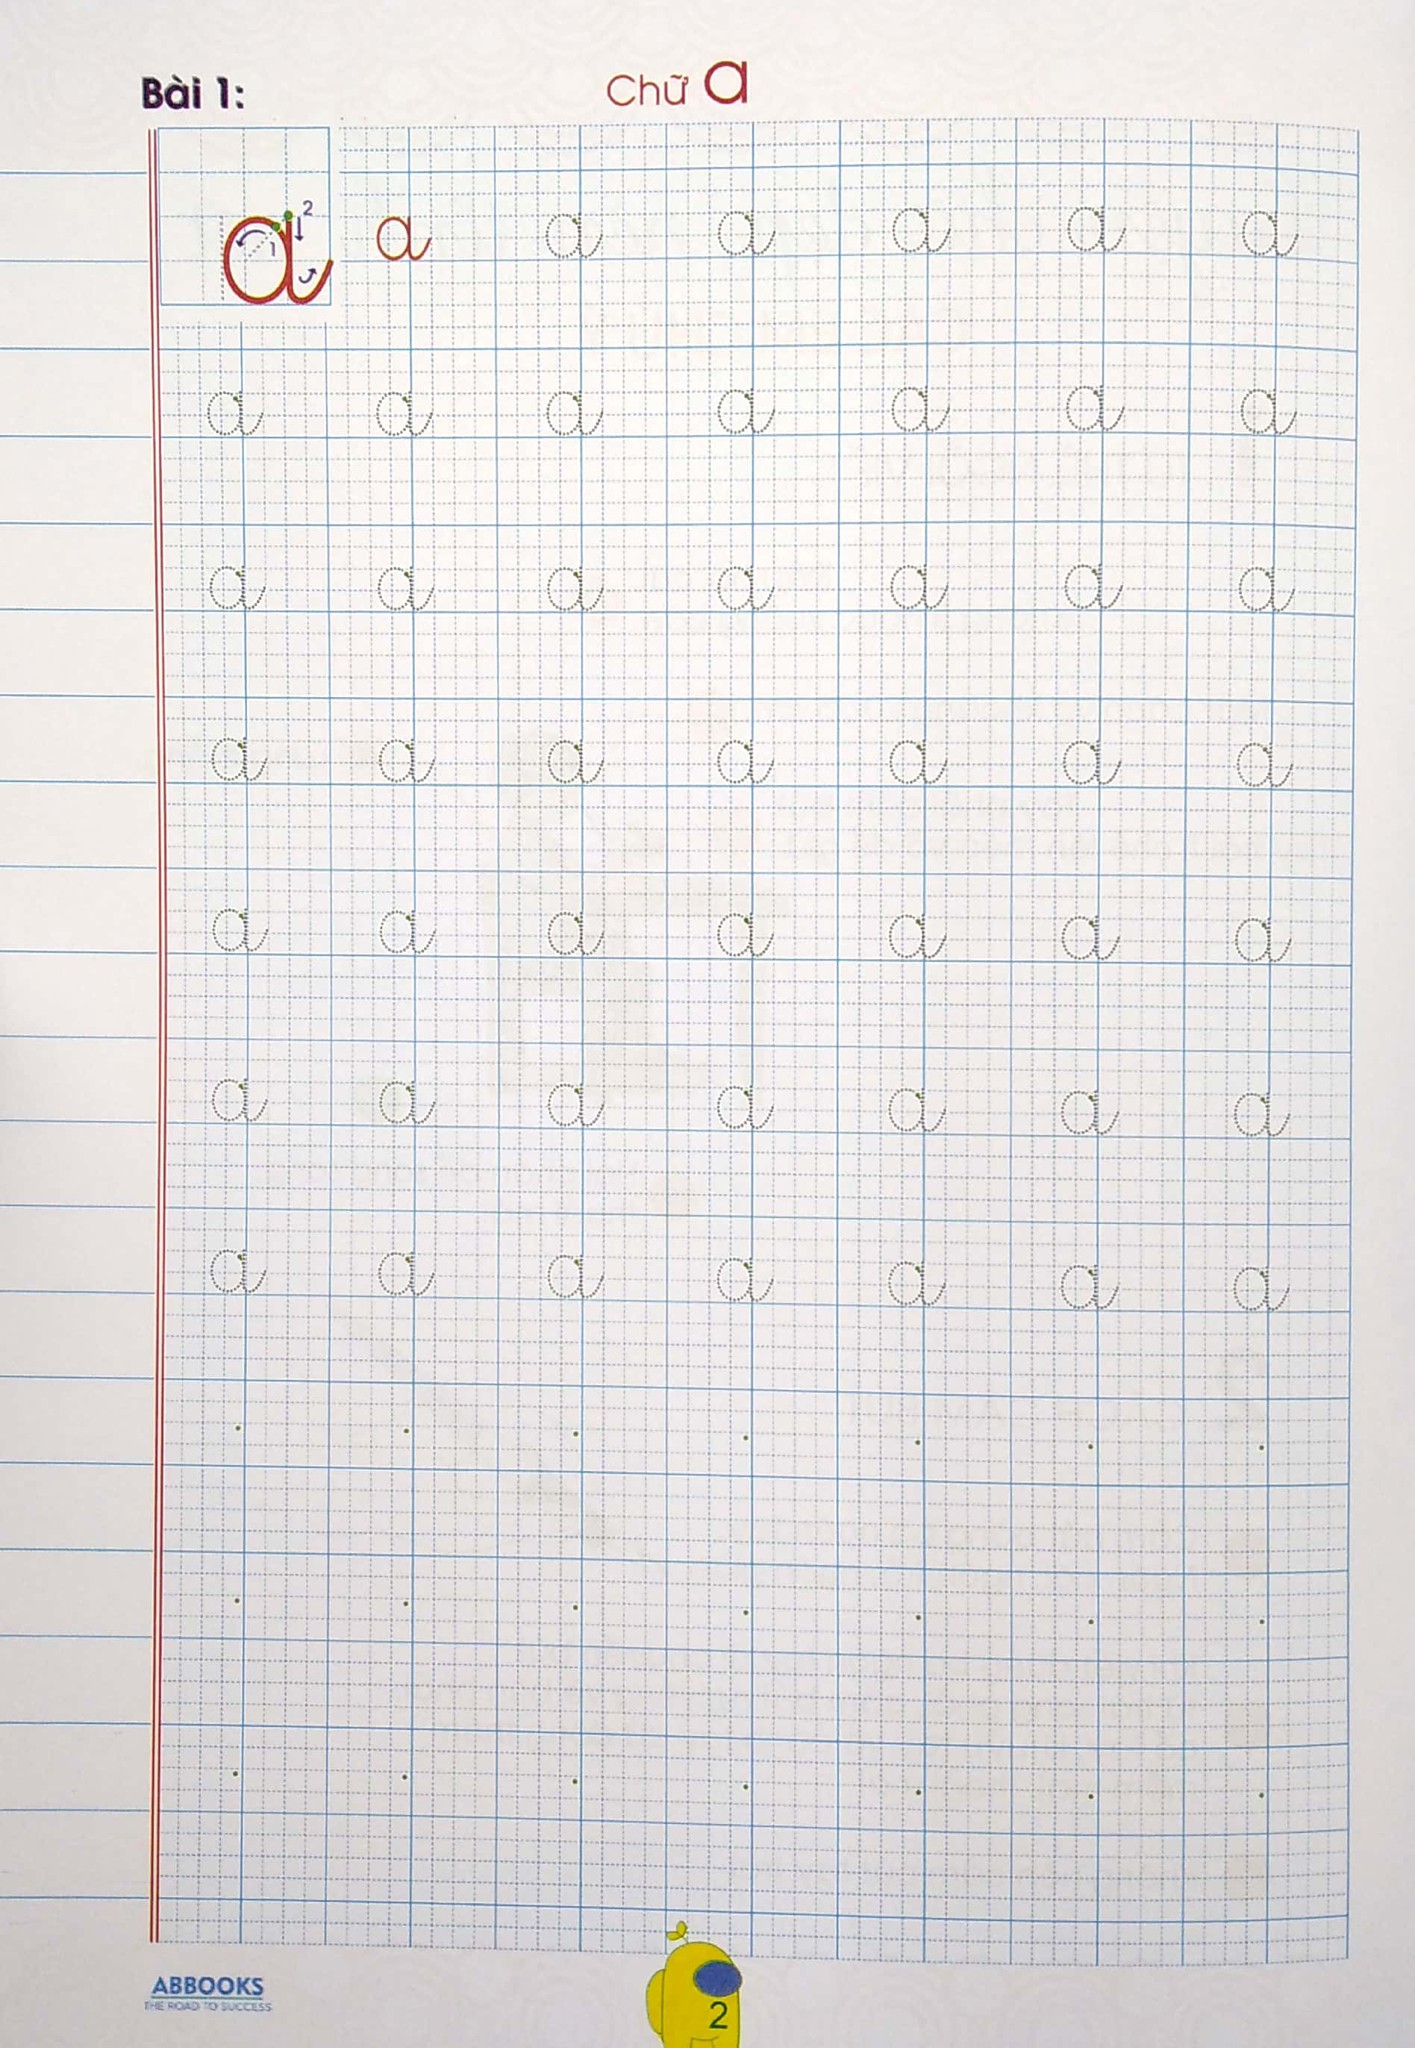 Bài 1:
Chữ a
1 2
a a a a a a a
a a a a a a a
a a a a a a a
a a a a a a a
a a a a a a a
a a a a a a a
a a a a a a a
ABBOOKS
THE ROAD TO SUCCESS
2